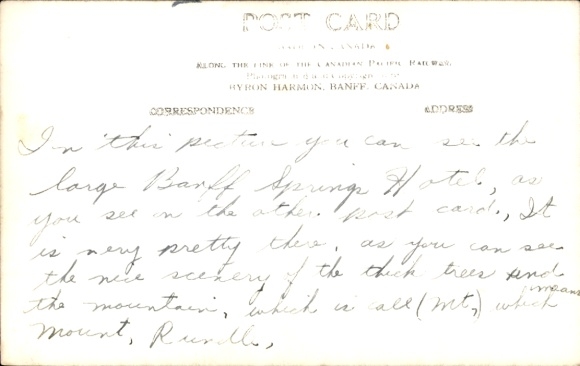 POST CARD
MADE IN CANADA
ALONG THE LINE OF THE CANADIAN PACIFIC RAILWAY.
BYRON HARMON, BANFF, CANADA
CORRESPONDENCE ADDRESS
In this picture you can see the
large Banff Springs Hotel, as
you see in the other post card, It
is very pretty there, as you can see
the nice scenery of the thick trees and
the mountain, which is call (Mt,) which means
Mount, Rundle,